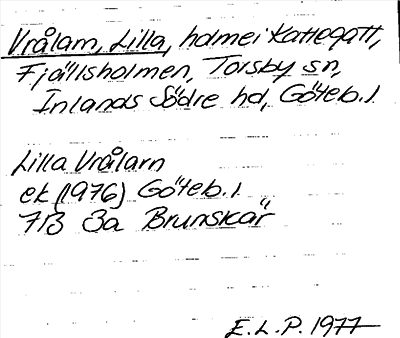 Vrålam, Lilla, holme i Kattegatt,
Fjällsholmen, Torsby sn,
Inlands Södre hd, Göteb. l.
Lilla Vrålam
ek (1976) Göteb. l.
7B 3a Brunskär
E. L. P. 1977